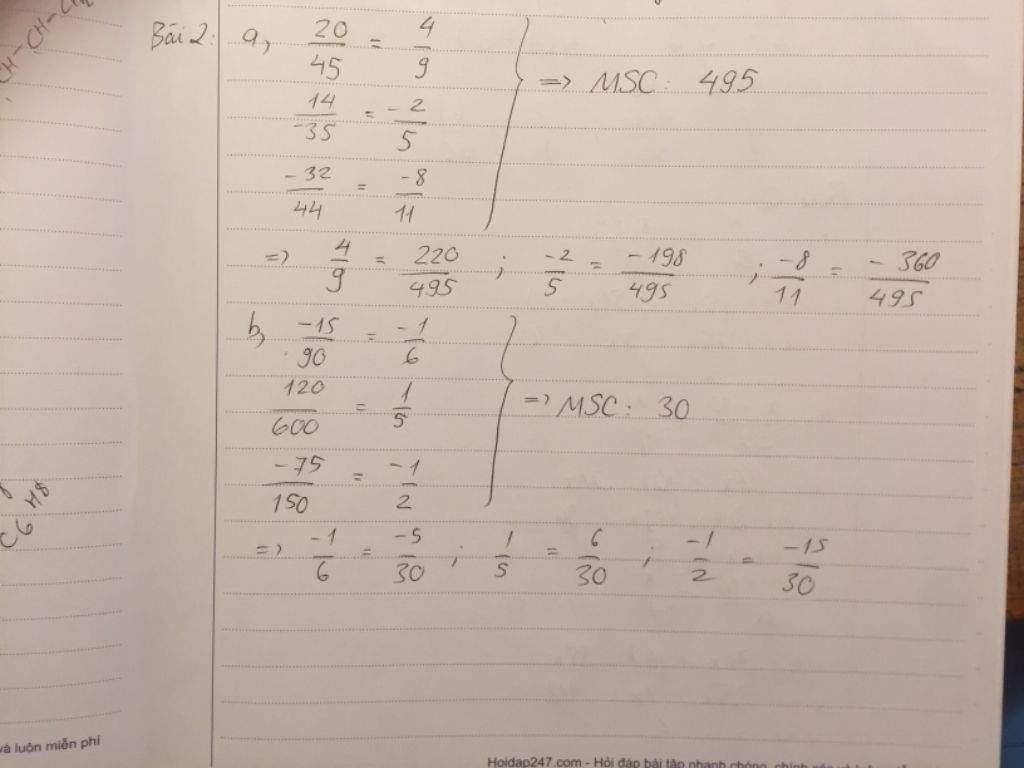 CH-CH-CH
Bài 2: a, 20/45 = 4/9
14/-35 = -2/5
-32/44 = -8/11
=> MSC: 495
=> 4/9 = 220/495 ; -2/5 = -198/495 ; -8/11 = -360/495
b, -15/90 = -1/6
120/600 = 1/5
-75/150 = -1/2
=> MSC: 30
=> -1/6 = -5/30 ; 1/5 = 6/30 ; -1/2 = -15/30
C6H8
và luôn miễn phí
Hoidap247.com - Hỏi đáp bài tập nhanh chóng, chính xác và luôn